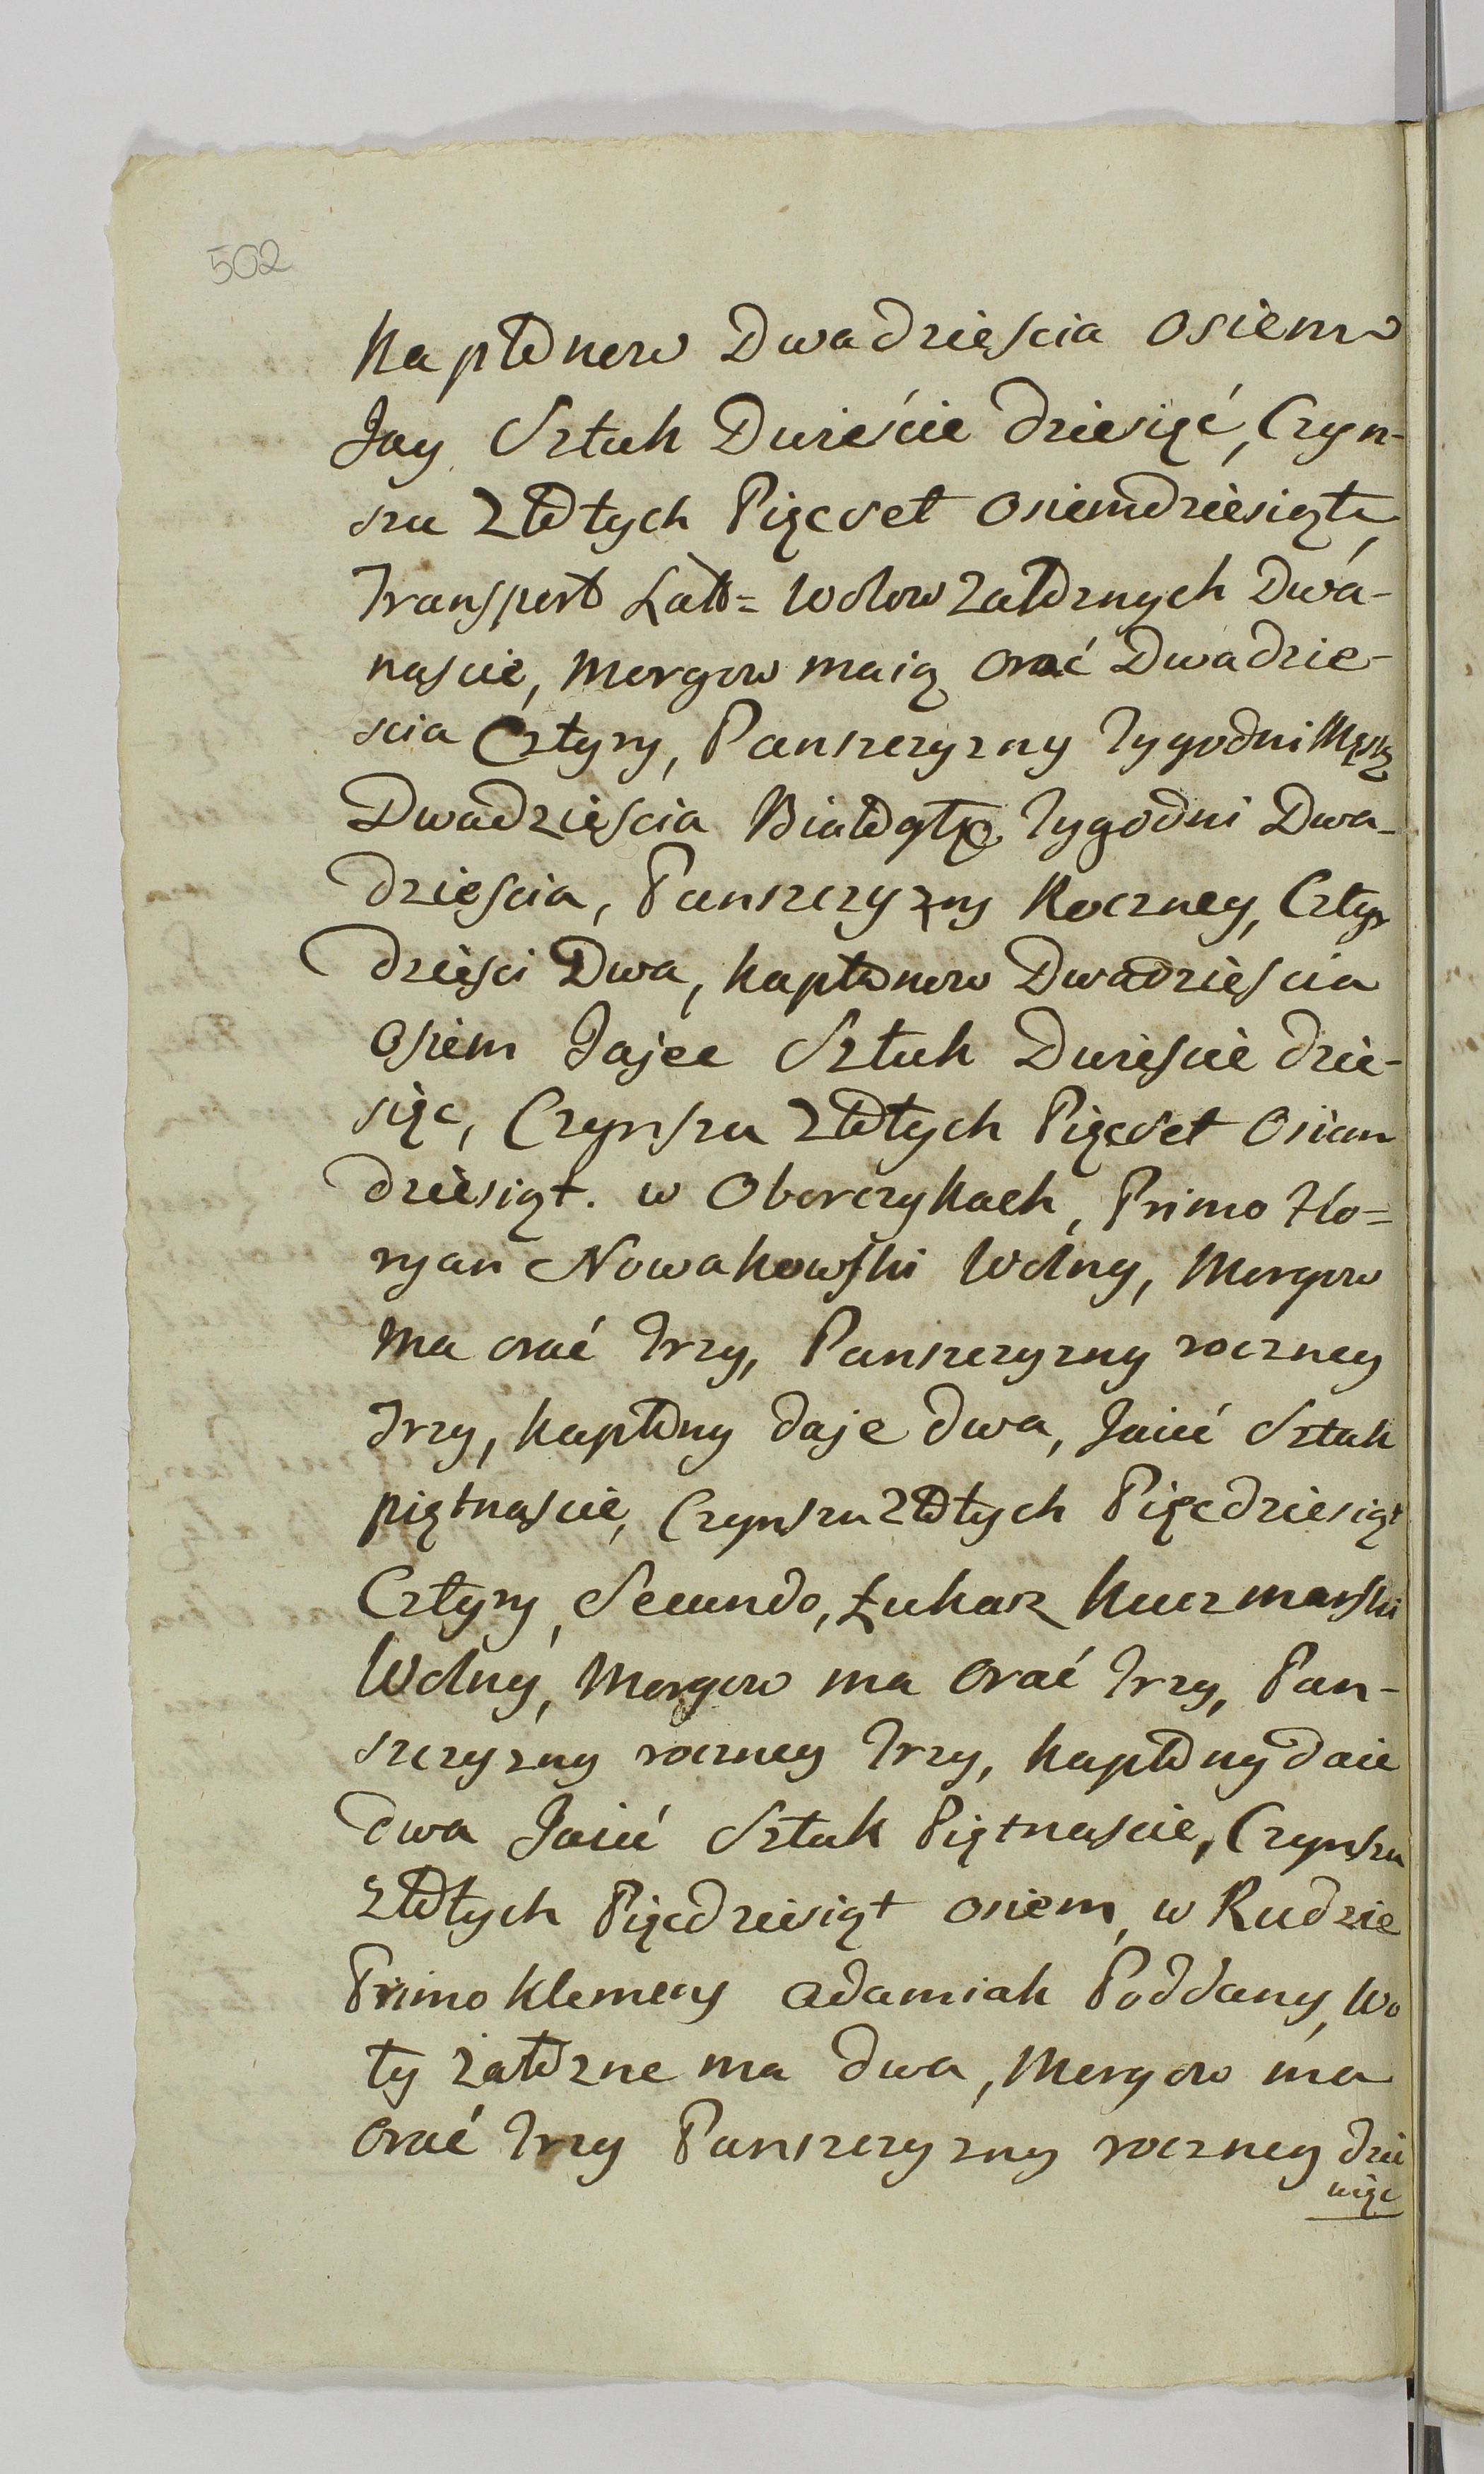 502
Kapłonow Dwadzieścia osiem
Jay Sztuk Dwieście dziesięć, Czyn-
szu Złotych Pięcset osiemdziesiąt,
Transport Wołow załoznych Dwa-
naście, Morgow maią orać Dwadzie-
ścia Cztyry, Panszczyzny Tygodni Męską
Dwadzieścia Białogło: Tygodni Dwa-
dzieścia, Panszczyzny Roczney, Cztyr
dzieści Dwa, Kapłonow Dwadzieścia
Osiem Jajec Sztuk Dwieście dzie-
sięc, Czynszu Złotych Pięcset Osiem
dziesiąt. w Oborczykach, Primo Flo=
ryan Nowakowski Wolny, Morgow
ma orać Trzy, Panszczyzny roczney
Trzy, Kapłony daje dwa, Jaiec Sztuk
piętnaście, Czynszu Złotych Pięcdziesiąt
Cztyry, Secundo, Łukasz Kuczmarski
Wolny, Morgow ma orać Trzy, Pan-
szczyzny roczney Trzy, Kapłony daie
dwa Jaiec Sztuk Piętnaście, Czynszu
Złotych Pięcdziesiąt osiem, w Rudzie
Primo Klemens Adamiak Poddany, Wo
ły załozne ma dwa, Morgow ma
orać Trzy Panszczyzny roczney dzie
więc